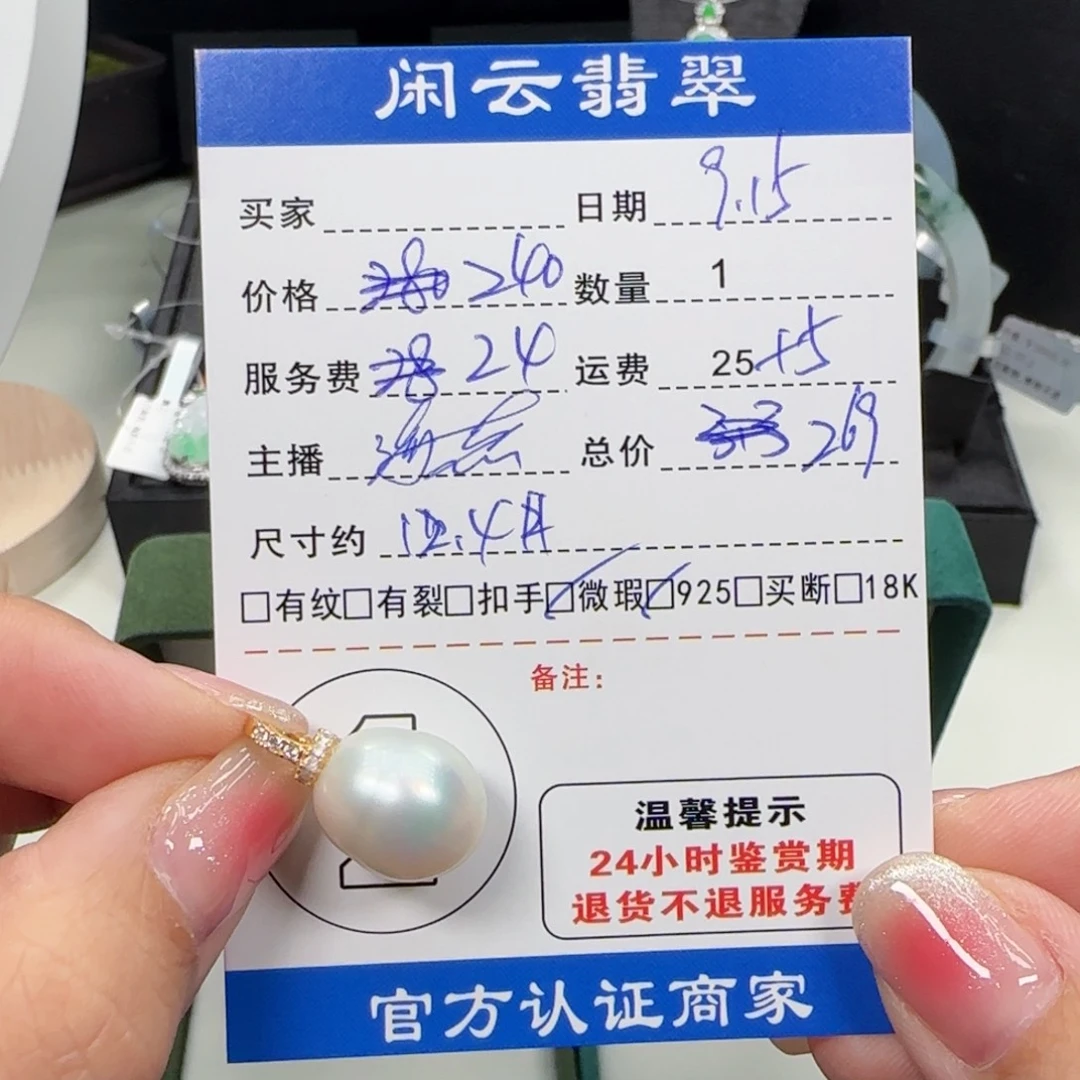 闲云翡翠
买家 日期 9.15
价格 240 数量 1
服务费 24 运费 25+5
主播 总价 269
尺寸约 12.4
□有纹□有裂□扣手☑微瑕☑925□买断□18K
备注:
温馨提示
24小时鉴赏期
退货不退服务费
官方认证商家